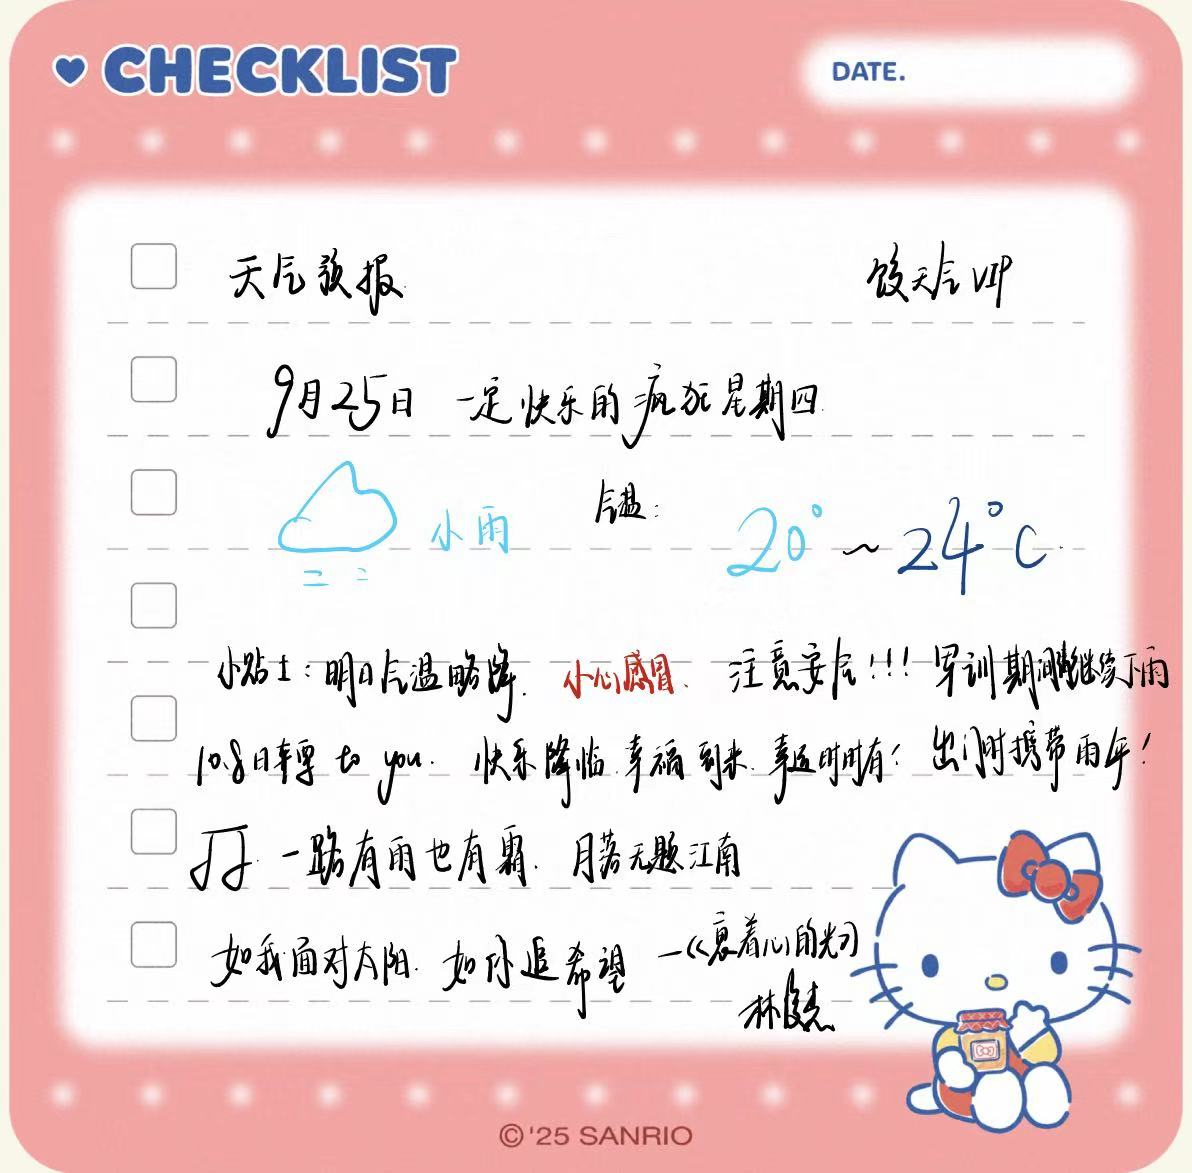 CHECKLIST
DATE.
天气预报 饺天气VIP
9月25日 一定快乐的疯狂星期四
小雨 气温: 20°~24°C
小贴士:明日气温略降. 小心感冒. 注意安全!!! 军训期间继续下雨
10.8日 to you. 快乐降临 幸福到来 幸运时时有! 出门时携带雨伞!
一路有雨也有霜. 月落无题江南
如我面对太阳. 如你追希望 —《裹着心的光》
林俊杰
©'25 SANRIO